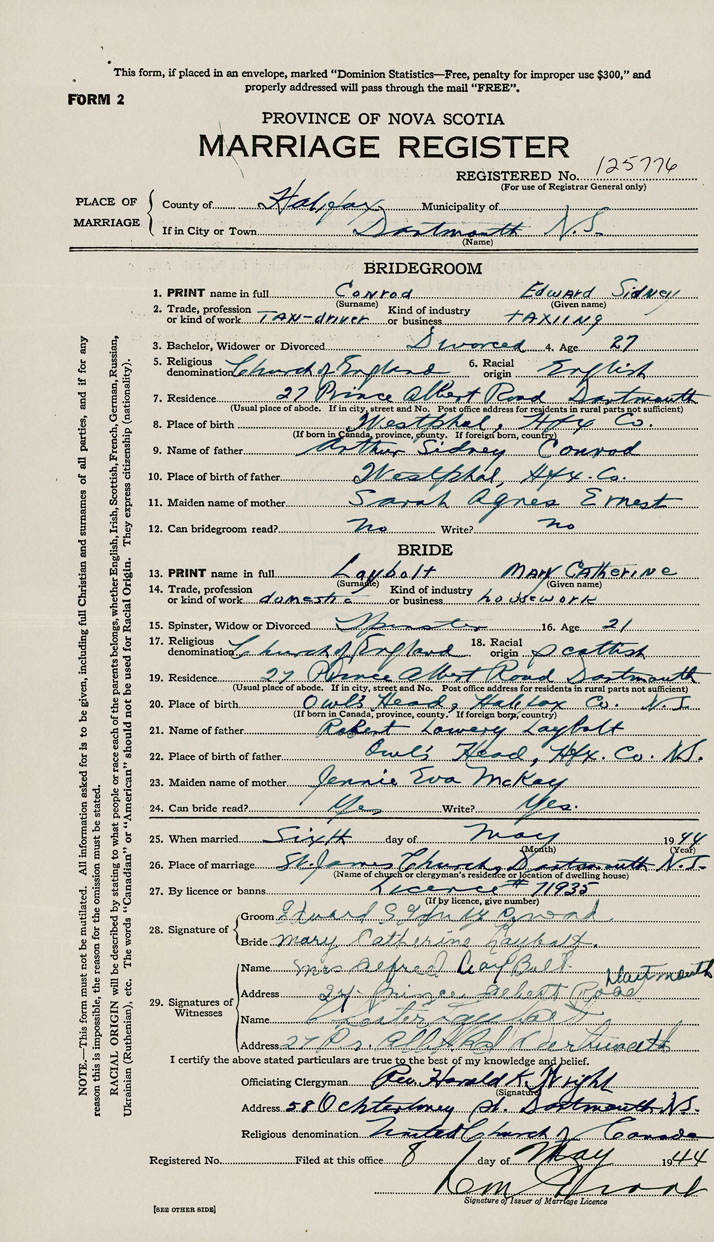 This form, if placed in an envelope, marked "Dominion Statistics—Free, penalty for improper use $300," and
properly addressed will pass through the mail "FREE".
FORM 2
PROVINCE OF NOVA SCOTIA
MARRIAGE REGISTER
REGISTERED No. 125776
(For use of Registrar General only)
PLACE OF MARRIAGE
County of Halifax Municipality of
If in City or Town Dartmouth N.S.
(Name)
BRIDEGROOM
1. PRINT name in full Conrod Edward Sidney
(Surname) (Given name)
2. Trade, profession or kind of work TAXI-driver Kind of industry or business TAXIING
3. Bachelor, Widower or Divorced Divorced 4. Age 27
5. Religious denomination Church of England 6. Racial origin English
7. Residence 27 Prince Albert Road Dartmouth
(Usual place of abode. If in city, street and No. Post office address for residents in rural parts not sufficient)
8. Place of birth Westphal, Hfx Co.
(If born in Canada, province, county. If foreign born, country)
9. Name of father Arthur Sidney Conrod
10. Place of birth of father Westphal, Hfx. Co.
11. Maiden name of mother Sarah Agnes Ernest
12. Can bridegroom read? No Write? No
BRIDE
13. PRINT name in full Laybolt Mary Catherine
(Surname) (Given name)
14. Trade, profession or kind of work domestic Kind of industry or business housework
15. Spinster, Widow or Divorced Spinster 16. Age 21
17. Religious denomination Church of England 18. Racial origin Scottish
19. Residence 27 Prince Albert Road Dartmouth
(Usual place of abode. If in city, street and No. Post office address for residents in rural parts not sufficient)
20. Place of birth Owl's Head, Halifax Co. N.S.
(If born in Canada, province, county. If foreign born, country)
21. Name of father Robert Lowery Laybolt
22. Place of birth of father Owl's Head, Hfx. Co. N.S.
23. Maiden name of mother Jennie Eva McKay
24. Can bride read? Yes Write? Yes.
25. When married Sixth day of May 1944
(Month) (Year)
26. Place of marriage St. James Church, Dartmouth N.S.
(Name of church or clergyman's residence or location of dwelling house)
27. By licence or banns Licence # 71935
(If by licence, give number)
28. Signature of
Groom Edward
Bride Mary Catherine Laybolt.
29. Signatures of Witnesses
Name Mrs Alfred
Address 27 Prince Albert Road Dartmouth
Name
Address 27 Pr.
I certify the above stated particulars are true to the best of my knowledge and belief.
Officiating Clergyman Rev. Harold K. Wright
(Signature)
Address 58 Ochterloney St. Dartmouth N.S.
Religious denomination United Church of Canada
Registered No. Filed at this office 8 day of May 1944
Signature of Issuer of Marriage Licence
[SEE OTHER SIDE]
NOTE.—This form must not be mutilated. All information asked for is to be given, including full Christian and surnames of all parties, and if for any
reason this is impossible, the reason for the omission must be stated.
RACIAL ORIGIN will be described by stating to what people or race each of the parents belongs, whether English, Irish, Scottish, French, German, Russian,
Ukrainian (Ruthenian), etc. The words "Canadian" or "American" should not be used for Racial Origin. They express citizenship (nationality).